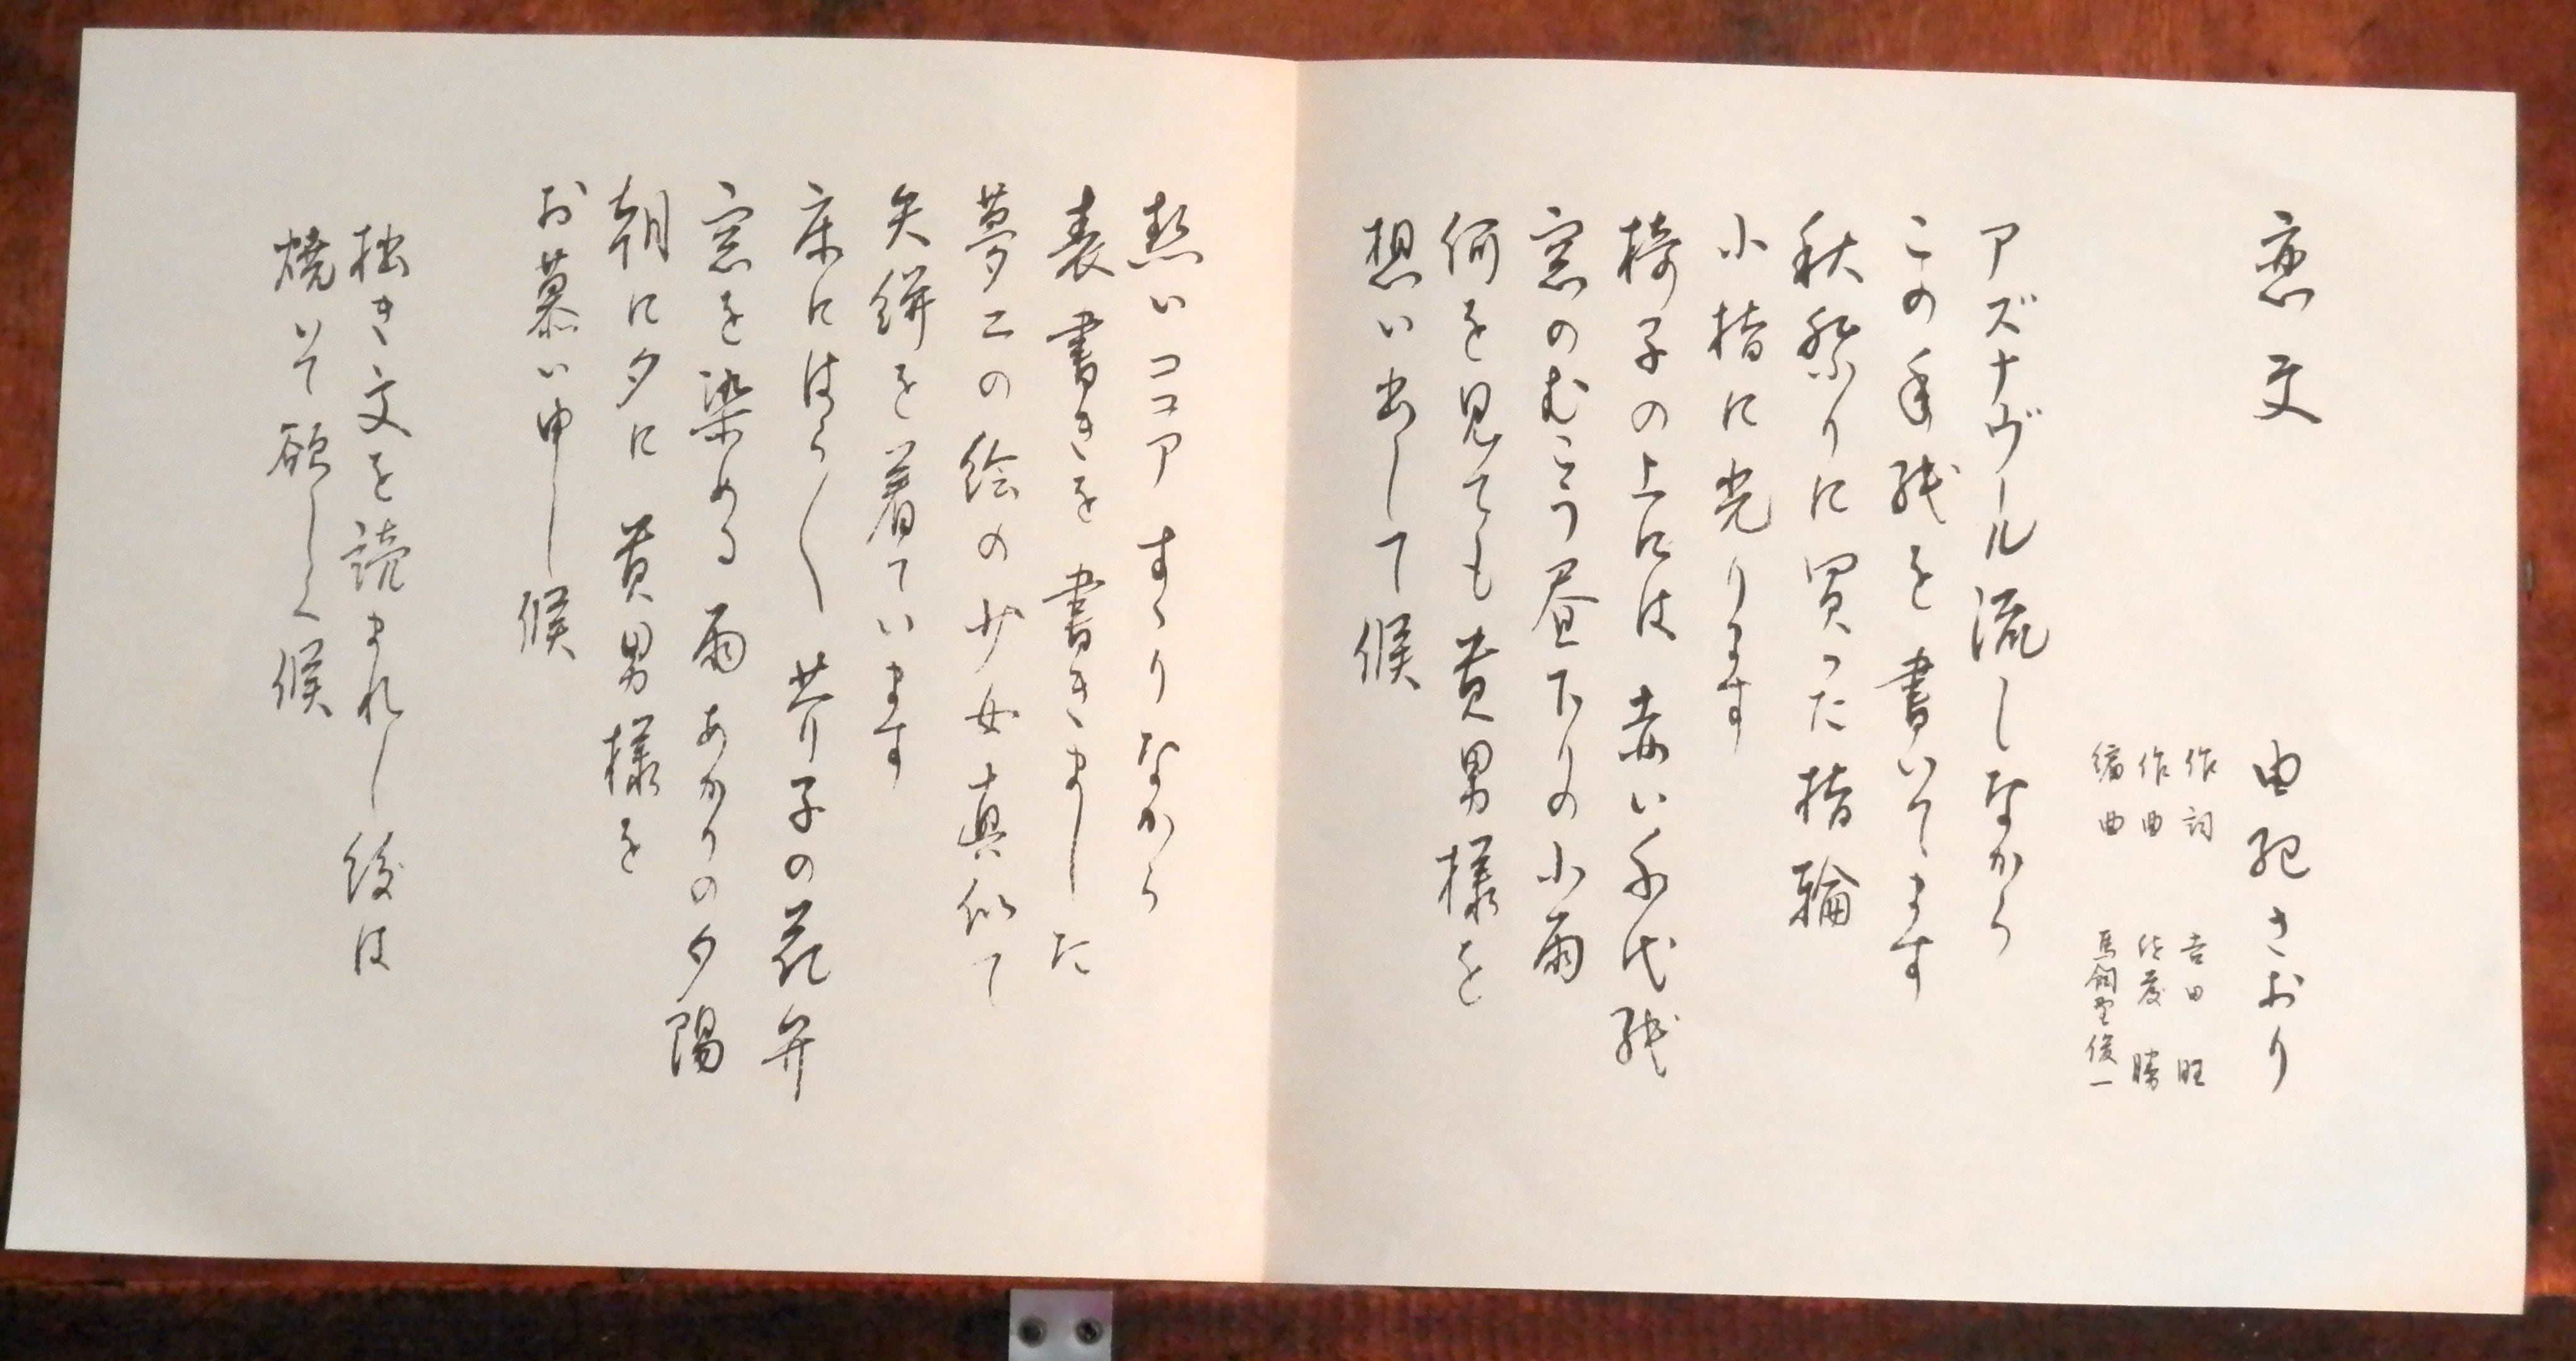 恋文
由紀さおり
作詞 吉田旺
作曲 佐藤勝
編曲 馬飼野俊一
アズナヴール流しながら
この手紙を書いてます
秋祭りに買った指輪
小指に光ります
椅子の上には赤い千代紙
窓のむこう昼下りの小雨
何を見ても貴男様を
想い出して候
熱いココアすゝりながら
表書きを書きました
夢二の絵の少女真似て
矢絣を着ています
床にはら〱芥子の花弁
窓を染める雨あがりの夕陽
朝に夕に貴男様を
お慕い申し候
拙き文を読まれし後は
焼いて欲しく候